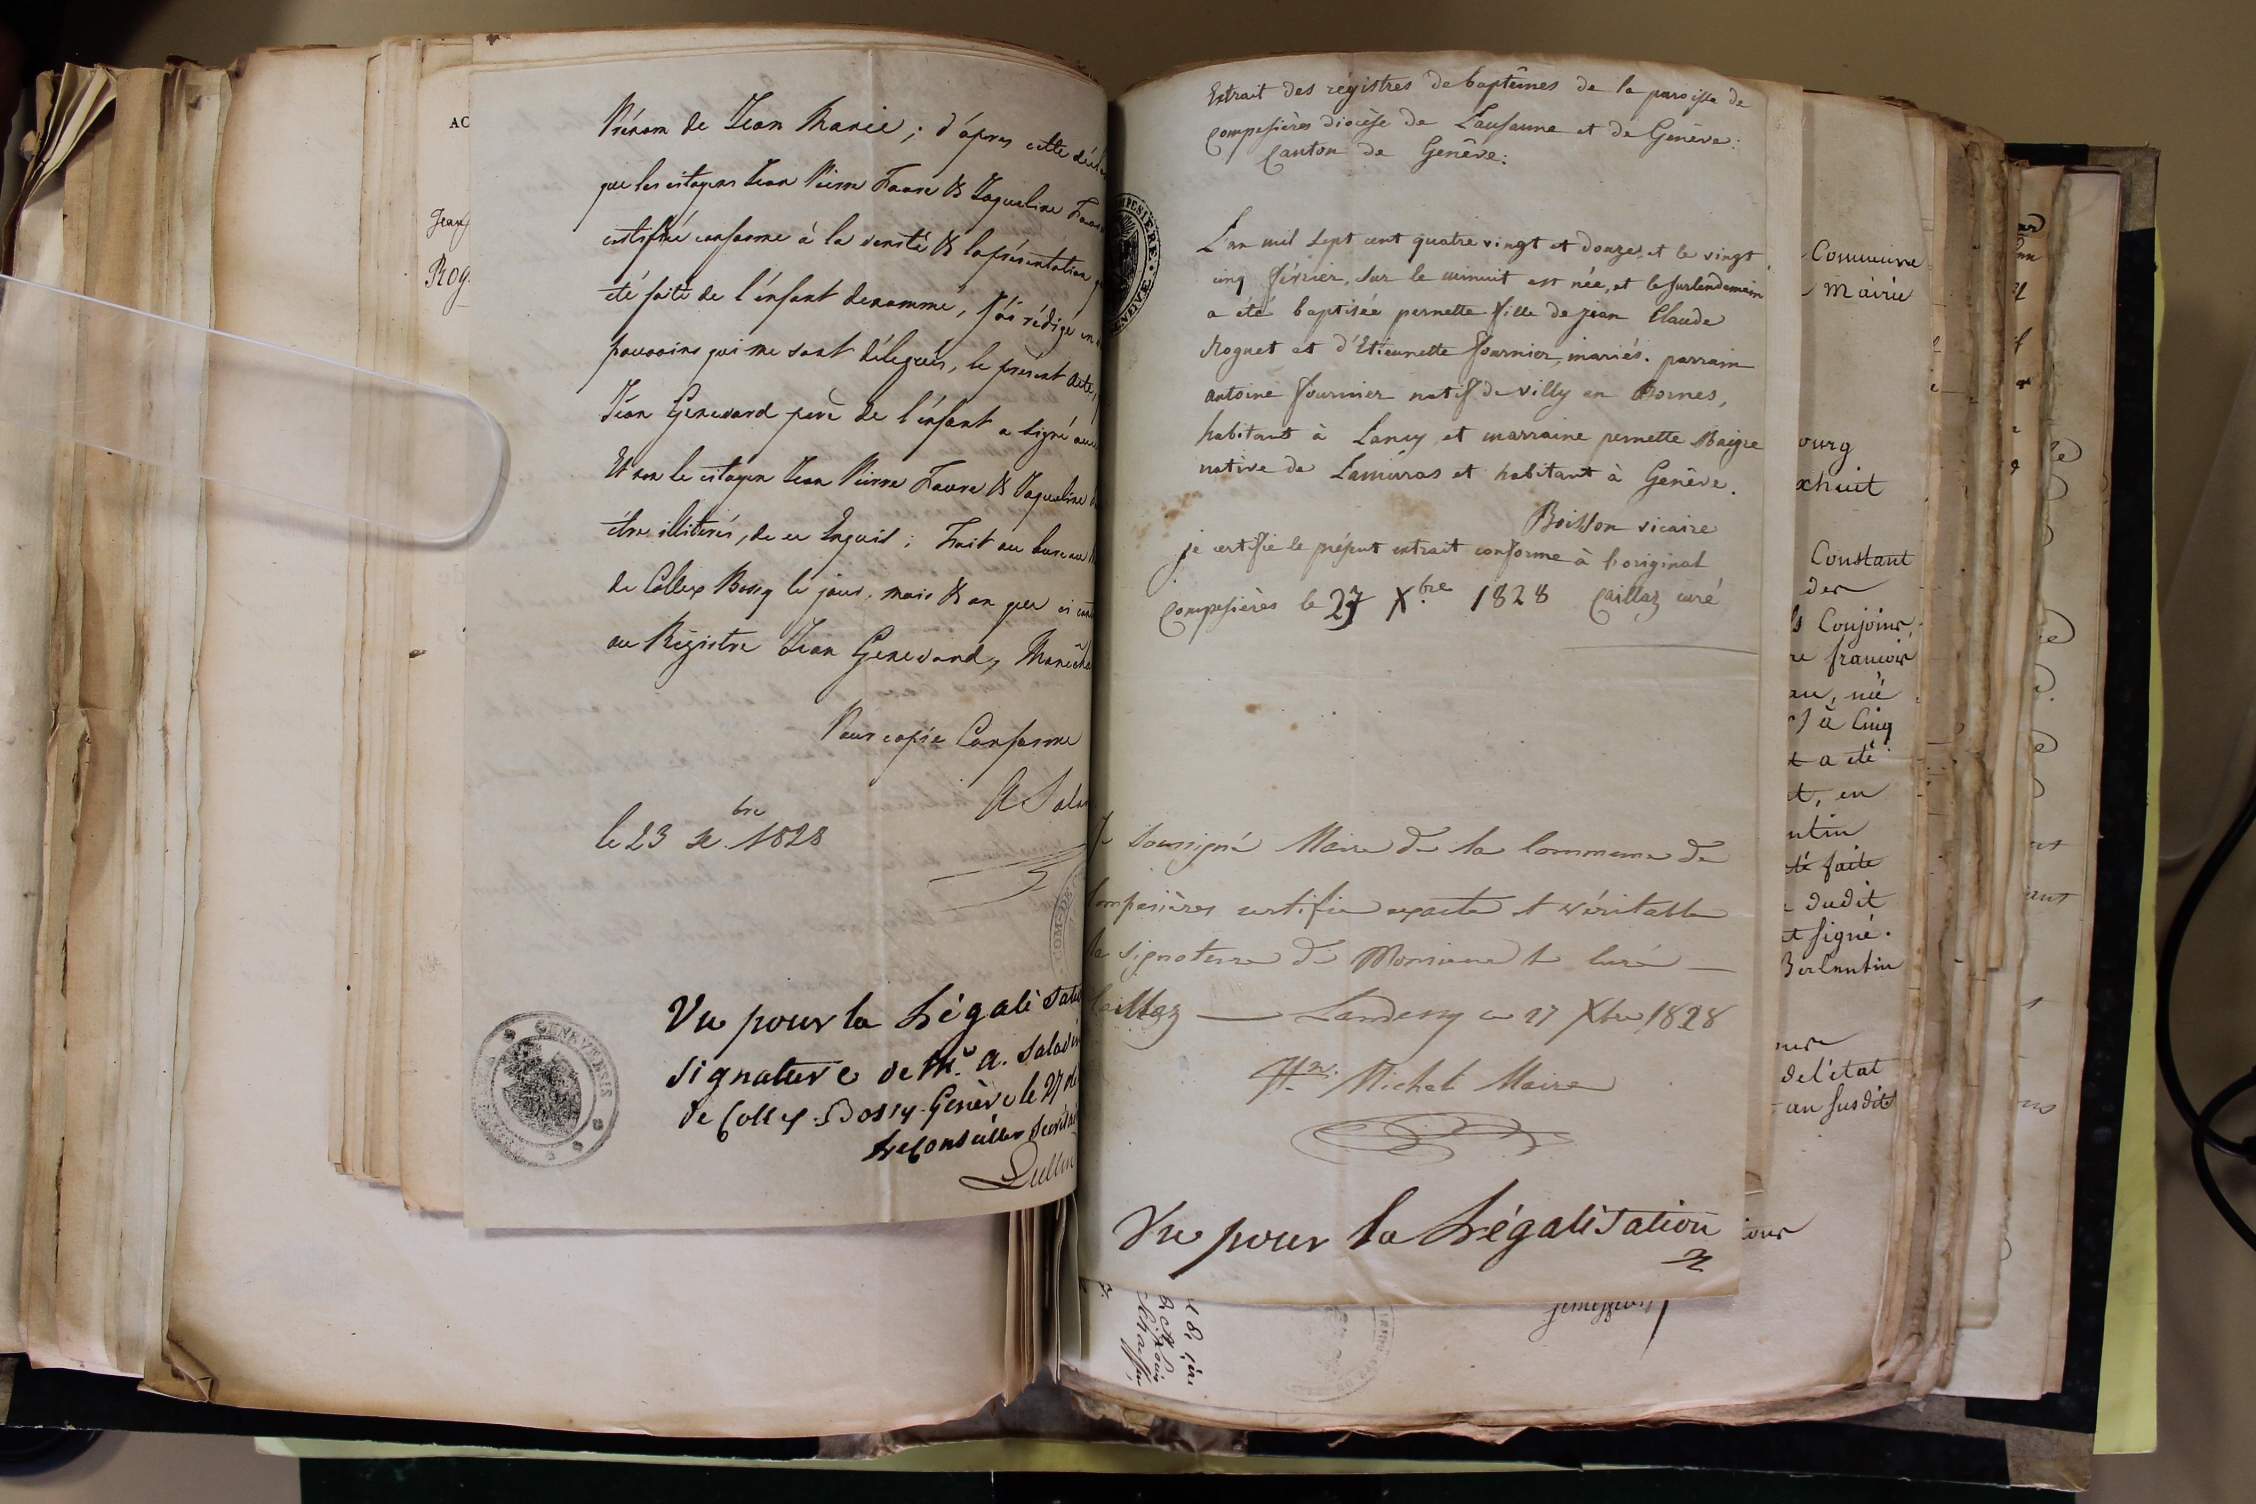 AC
Jean
Rog
Prénom de Jean Marie ; d'après cette
que les citoyens Jean Pierre Favre & Jaqueline
certifiée conforme à la vérité & la présentation
été faite de l'enfant denommé, j'ai rédigé en
pouvoirs qui me sont délegués, le présent acte,
Jean Genevard père de l'enfant a signé
Et non le citoyen Jean Pierre Favre & Jaqueline
être illiterés, de ce Enquis ; Fait au bureau
de Collex Bossy le jour, mois & an que
au Régistre Jean Genevard,
Pour copie Conforme
A Sala
le 23 xbre 1828
COM DE
Vu pour la Légalisatio
signature de Mr. A. Saladin
de Collex-Bossy Genève le 27
Le Conseiller Secrétai
Lullin
GENEVENSIS
Extrait des régistres de baptêmes de la paroisse de
Compesières diocèse de Lausanne et de Genêve:
Canton de Genêve:
L'an mil sept cent quatre vingt et douze, et le vingt
cinq février, sur le minuit est née, et le surlendemain
a été baptisée pernette fille de jean Claude
Roguet et d'Etiennette fournier, mariés. parrain
antoine fournier natif de villy en Bornes,
habitant à Lancy et marraine pernette Baigre
native de Lamuras et habitant à Genêve.
Boisson vicaire
je certifie le présent extrait conforme à l'original
Compesières le 27 Xbre 1828 Caillaz curé
Je soussigné Maire de la Commune de
Compesières certifie exacte et véritable
la signature de Monsieur le Curé
Caillaz — Landecy ce 27 Xbre 1828
Michel Maire
Vu pour la Légalisation
Commune
Mairie
ourg
xhuit
Constant
der
ls Conjoins
re francois
au, né
à Cinq
t a été
t, en
ntin
té faite
dudit
et signé.
Berlentin
de l'état
an susdit